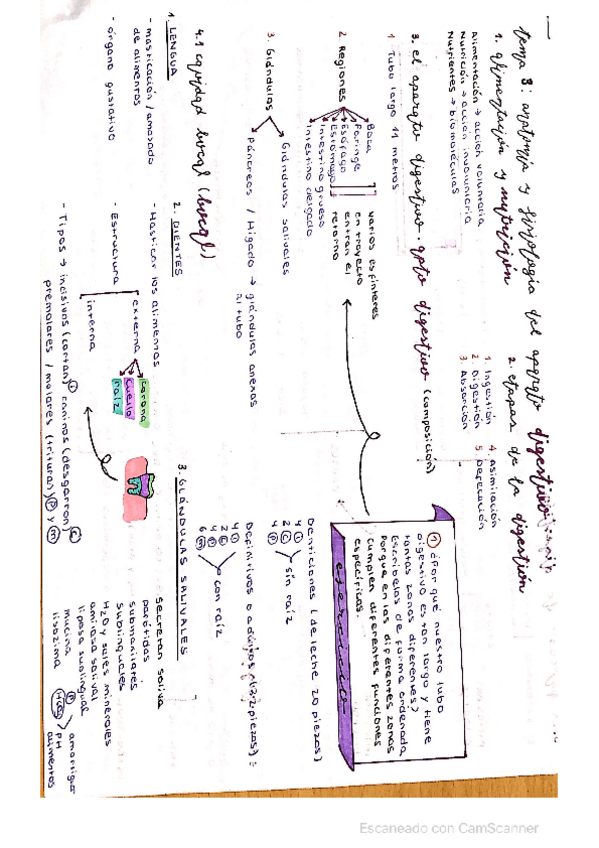 tema 3: anatomía y fisiología del aparato digestivo
1. alimentación y nutrición
Alimentación → acción voluntaria
Nutrición → acción involuntaria
Nutrientes → biomoléculas
2. etapas de la digestión
1. Ingestión
2. Digestión
3. Absorción
4. Asimilación
5. Defecación
3. el aparato digestivo. apto digestivo (composición)
1 Tubo largo 11 metros
2 Regiones
Boca
Faringe
Esófago
Estómago
Intestino grueso
Intestino delgado
varios esfínteres
en trayecto
entran el
retorno
3. Glándulas
Glándulas salivales
Páncreas / Hígado → glándulas anexas
al tubo
ejercicio
1) ¿Por qué nuestro tubo
digestivo es tan largo y tiene
tantas zonas diferentes?
Escríbelas de forma ordenada
Porque en las diferentes zonas
cumplen diferentes funciones
específicas.
4.1 cavidad bocal (bucal)
1. LENGUA
- masticación / amasado
de alimentos
- órgano gustativo
2. DIENTES
- Masticar los alimentos
- Estructura
externa
corona
cuello
raíz
interna
- Tipos → incisivos (cortan) I caninos (desgarran) C
premolares / molares (trituran) P y M
Denticiones (de leche 20 piezas)
4 I
2 C
4 P
sin raíz
Definitivos o adultos (32 piezas):
4 I
2 C
4 P
6 M
con raíz
3. GLÁNDULAS SALIVALES
Secretan saliva
parótidas
submaxilares
Sublinguales
H2O y sales minerales
amilasa salival
liposa sublingual
mucina
lisozima
amortigua
PH
alimentos
Escaneado con CamScanner